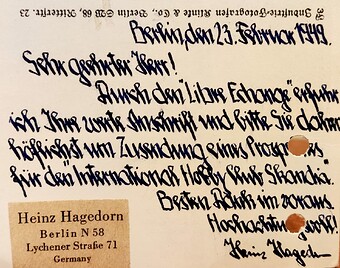 39 Industrie-Fotografen Klinke & Co., Berlin SW 68, Ritterstr. 23
Berlin, den 23. Februar 1949.
Sehr geehrter Herr!
Durch den "Libre Echange" erfuhr
ich Ihre werte Anschrift und bitte Sie daher
höflichst um Zusendung eines
für den "International Hobby Klub Skandia".
Besten Dank im voraus.
Hochachtungsvoll!
Heinz Hagedorn
Heinz Hagedorn
Berlin N 58
Lychener Straße 71
Germany